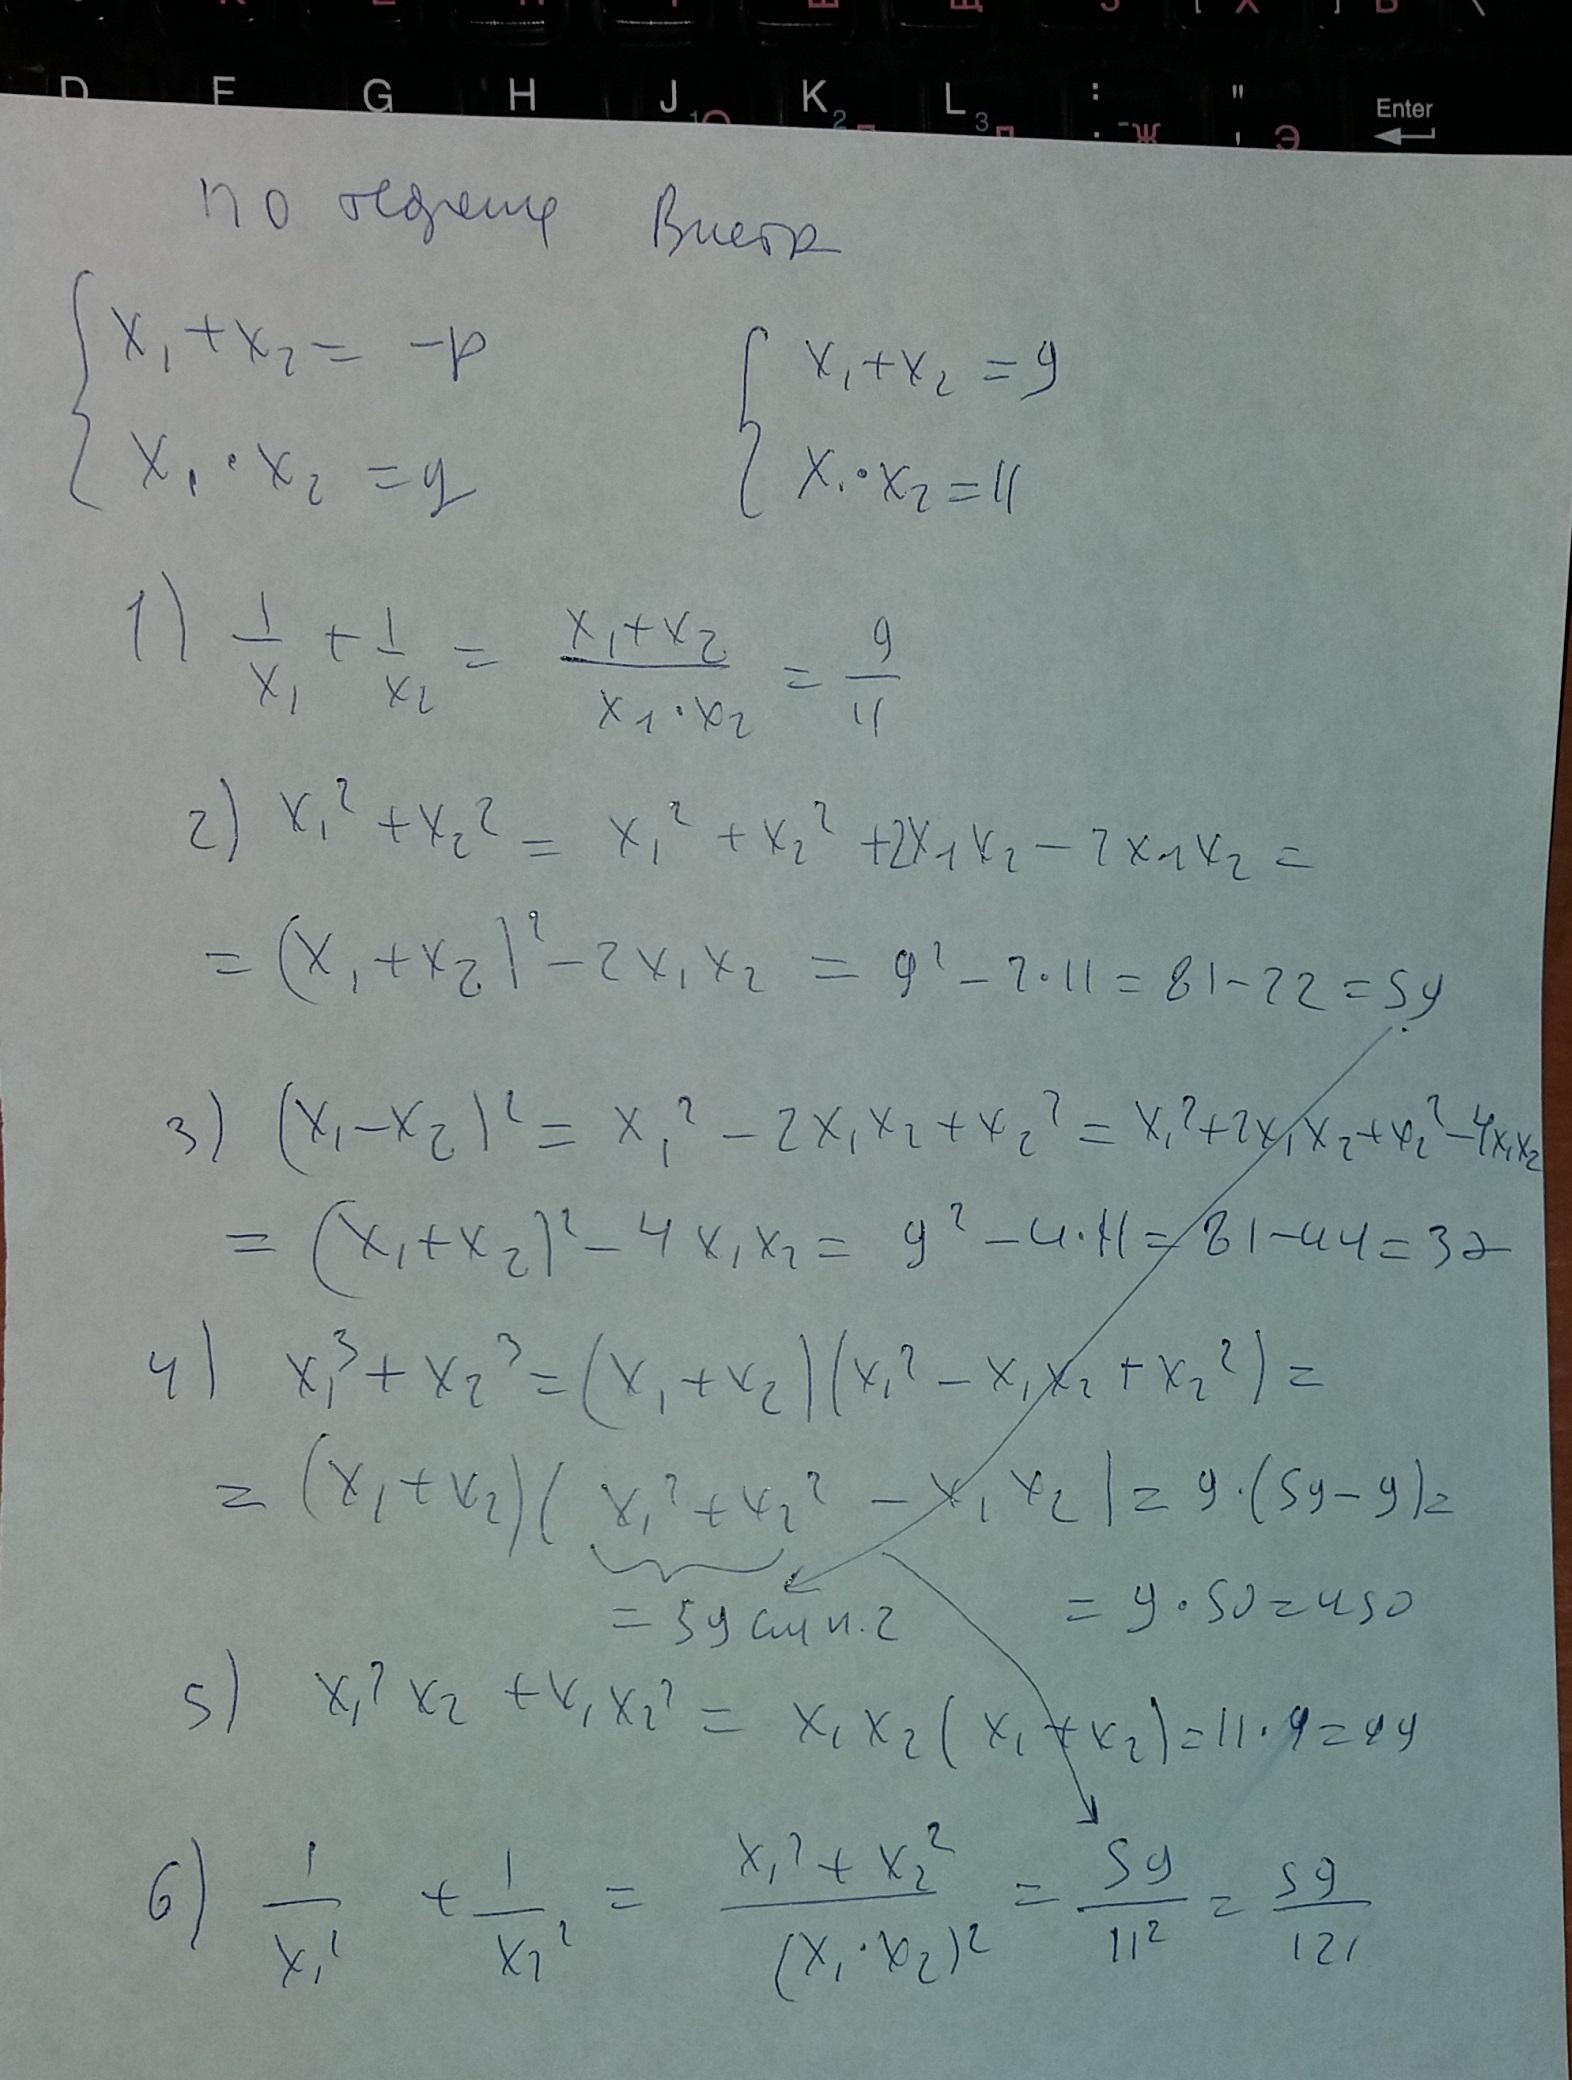 D F G H J K L : " Enter
1 О 2 Л 3 Д ; Ж ' Э
по теореме Виета
x₁+x₂ = -p x₁+x₂ = 9
x₁·x₂ = q x₁·x₂ = 11
1) 1/x₁ + 1/x₂ = (x₁+x₂)/(x₁·x₂) = 9/11
2) x₁² + x₂² = x₁² + x₂² + 2x₁x₂ - 2x₁x₂ =
= (x₁+x₂)² - 2x₁x₂ = 9² - 2·11 = 81-22 = 59
3) (x₁-x₂)² = x₁² - 2x₁x₂ + x₂² = x₁²+2x₁x₂+x₂²-4x₁x₂
= (x₁+x₂)² - 4x₁x₂ = 9² - 4·11 = 81-44 = 37
4) x₁³ + x₂³ = (x₁+x₂)(x₁² - x₁x₂ + x₂²) =
= (x₁+x₂)(x₁²+x₂² - x₁x₂) = 9·(59-9) =
= 59 см п.2 = 9·50 = 450
5) x₁²x₂ + x₁x₂² = x₁x₂(x₁+x₂) = 11·9 = 99
6) 1/x₁² + 1/x₂² = (x₁²+x₂²)/(x₁·x₂)² = 59/11² = 59/121